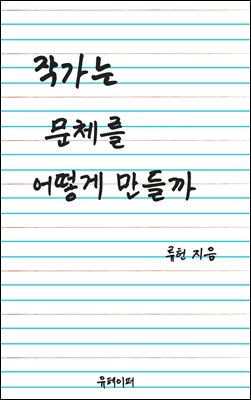 작가는
문체를
어떻게 만들까
류헌 지음
유페이퍼